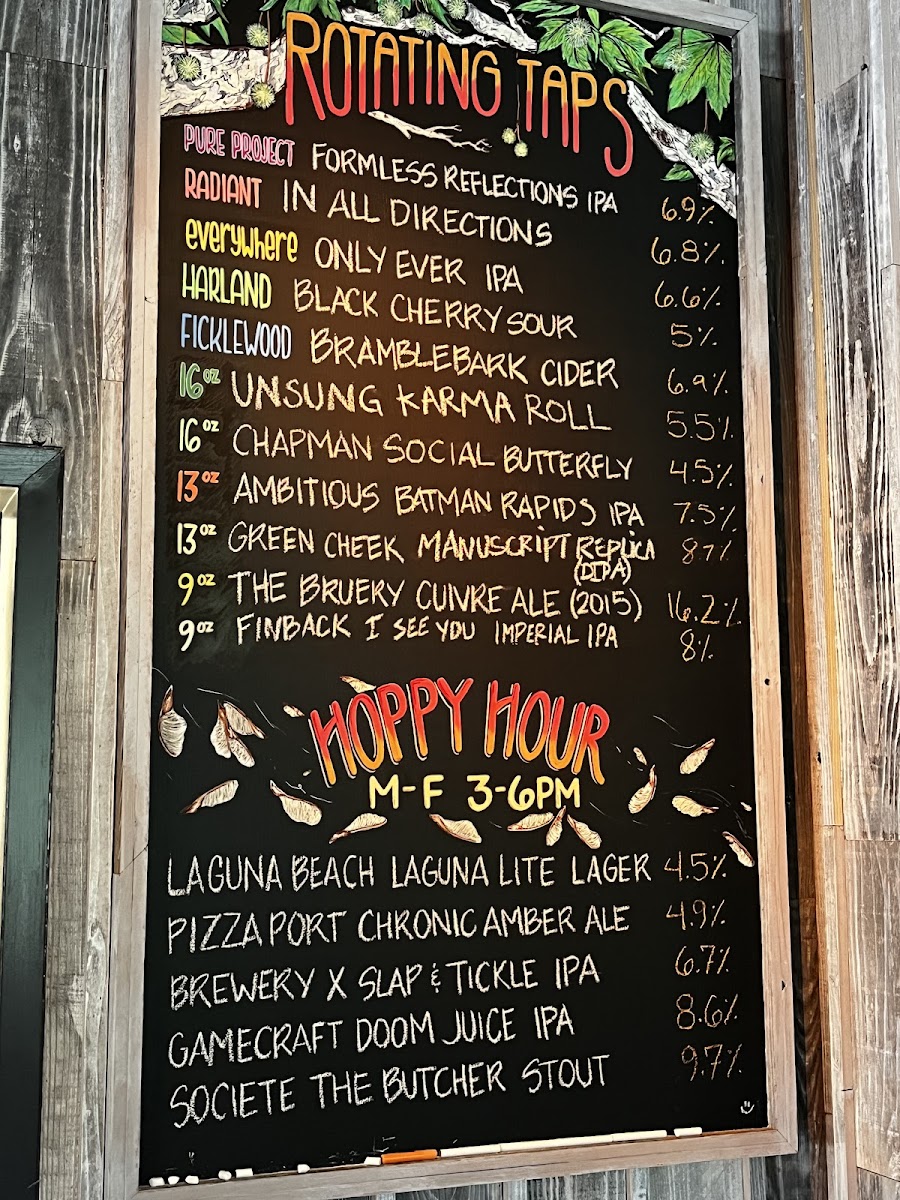 ROTATING TAPS
PURE PROJECT FORMLESS REFLECTIONS IPA 6.9%
RADIANT IN ALL DIRECTIONS 6.8%
everywhere ONLY EVER IPA 6.6%
HARLAND BLACK CHERRY SOUR 5%
FICKLEWOOD BRAMBLEBARK CIDER 6.9%
16oz UNSUNG KARMA ROLL 5.5%
16oz CHAPMAN SOCIAL BUTTERFLY 4.5%
13oz AMBITIOUS BATMAN RAPIDS IPA 7.5%
13oz GREEN CHEEK MANUSCRIPT REPLICA 8.7%
(DIPA)
9oz THE BRUERY CUIVRE ALE (2015) 16.2%
9oz FINBACK I SEE YOU IMPERIAL IPA 8%
HOPPY HOUR
M-F 3-6PM
LAGUNA BEACH LAGUNA LITE LAGER 4.5%
PIZZA PORT CHRONIC AMBER ALE 4.9%
BREWERY X SLAP & TICKLE IPA 6.7%
GAMECRAFT DOOM JUICE IPA 8.6%
SOCIETE THE BUTCHER STOUT 9.7%